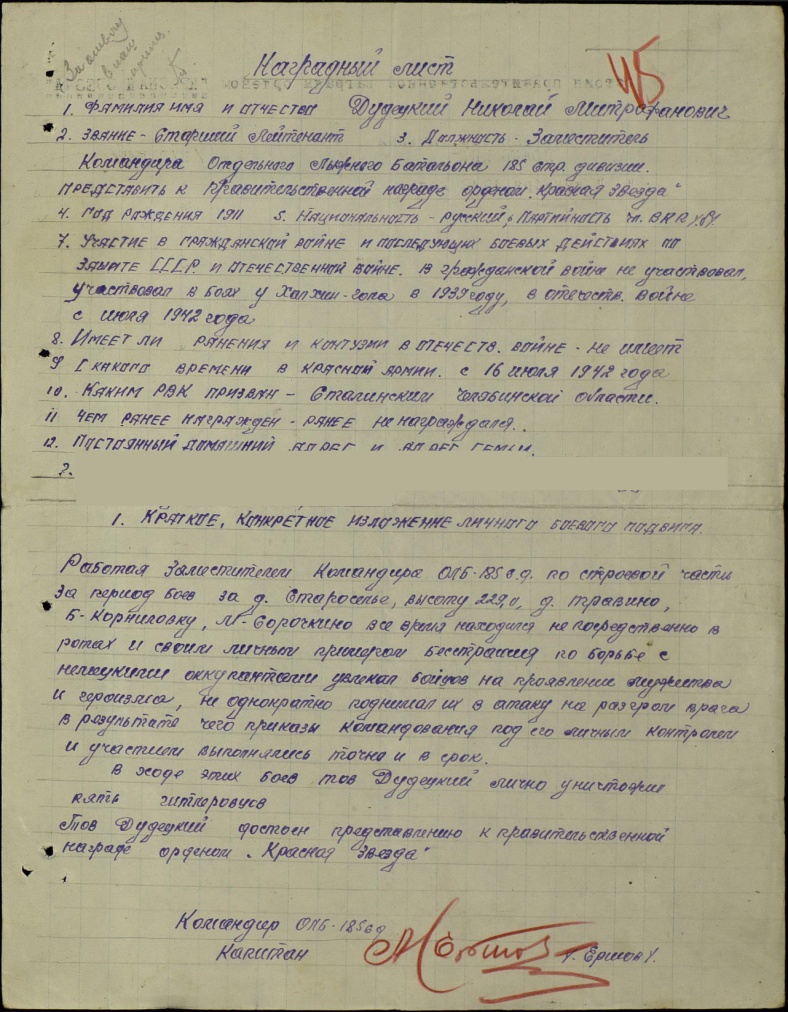 За отвагу
Наградный лист
1. Фамилия имя и отчество Дудецкий Николай Митрофанович
2. Звание - Старший Лейтенант 3. Должность - Заместитель
Командира Отдельного Лыжного Батальона 185 стр. дивизии.
Представить к Правительственной награде орденом „Красная Звезда"
4. Год рождения 1911 5. Национальность - русский, Партийность чл. ВКП(б)
7. Участие в гражданской войне и последующих боевых действиях по
защите СССР и отечественной войне. В гражданской войне не участвовал,
участвовал в боях у Халхин-гола в 1939 году, в отечеств. войне
с июля 1942 года
8. Имеет ли ранения и контузии в отечеств. войне - не имеет
9 С какого времени в красной армии. с 16 июля 1942 года
10. Каким РВК призван - Сталинским Челябинской области.
11 Чем ранее награжден - ранее не награждался.
12. Постоянный домашний адрес и адрес семьи.
2.
1. Краткое, конкретное изложение личного боевого подвига.
Работая Заместителем Командира ОЛБ-185 с.д. по строевой части
за период боев за д. Староселье, высоту 229,0, д. Травино,
Б-Корниловку, М-Сорочкино все время находился не посредственно в
ротах и своим личным примером бесстрашия по борьбе с
немецкими оккупантами увлекал бойцов на проявление мужества
и героизма, не однократно поднимал их в атаку на разгром врага
в результате чего приказы командования под его личным контролем
и участием выполнялись точно и в срок.
В ходе этих боев тов Дудецкий лично уничтожил
пять гитлеровцев
Тов Дудецкий достоен представлению к правительственной
награде орденом „Красная Звезда"
Командир ОЛБ-185сд
Капитан Ершов